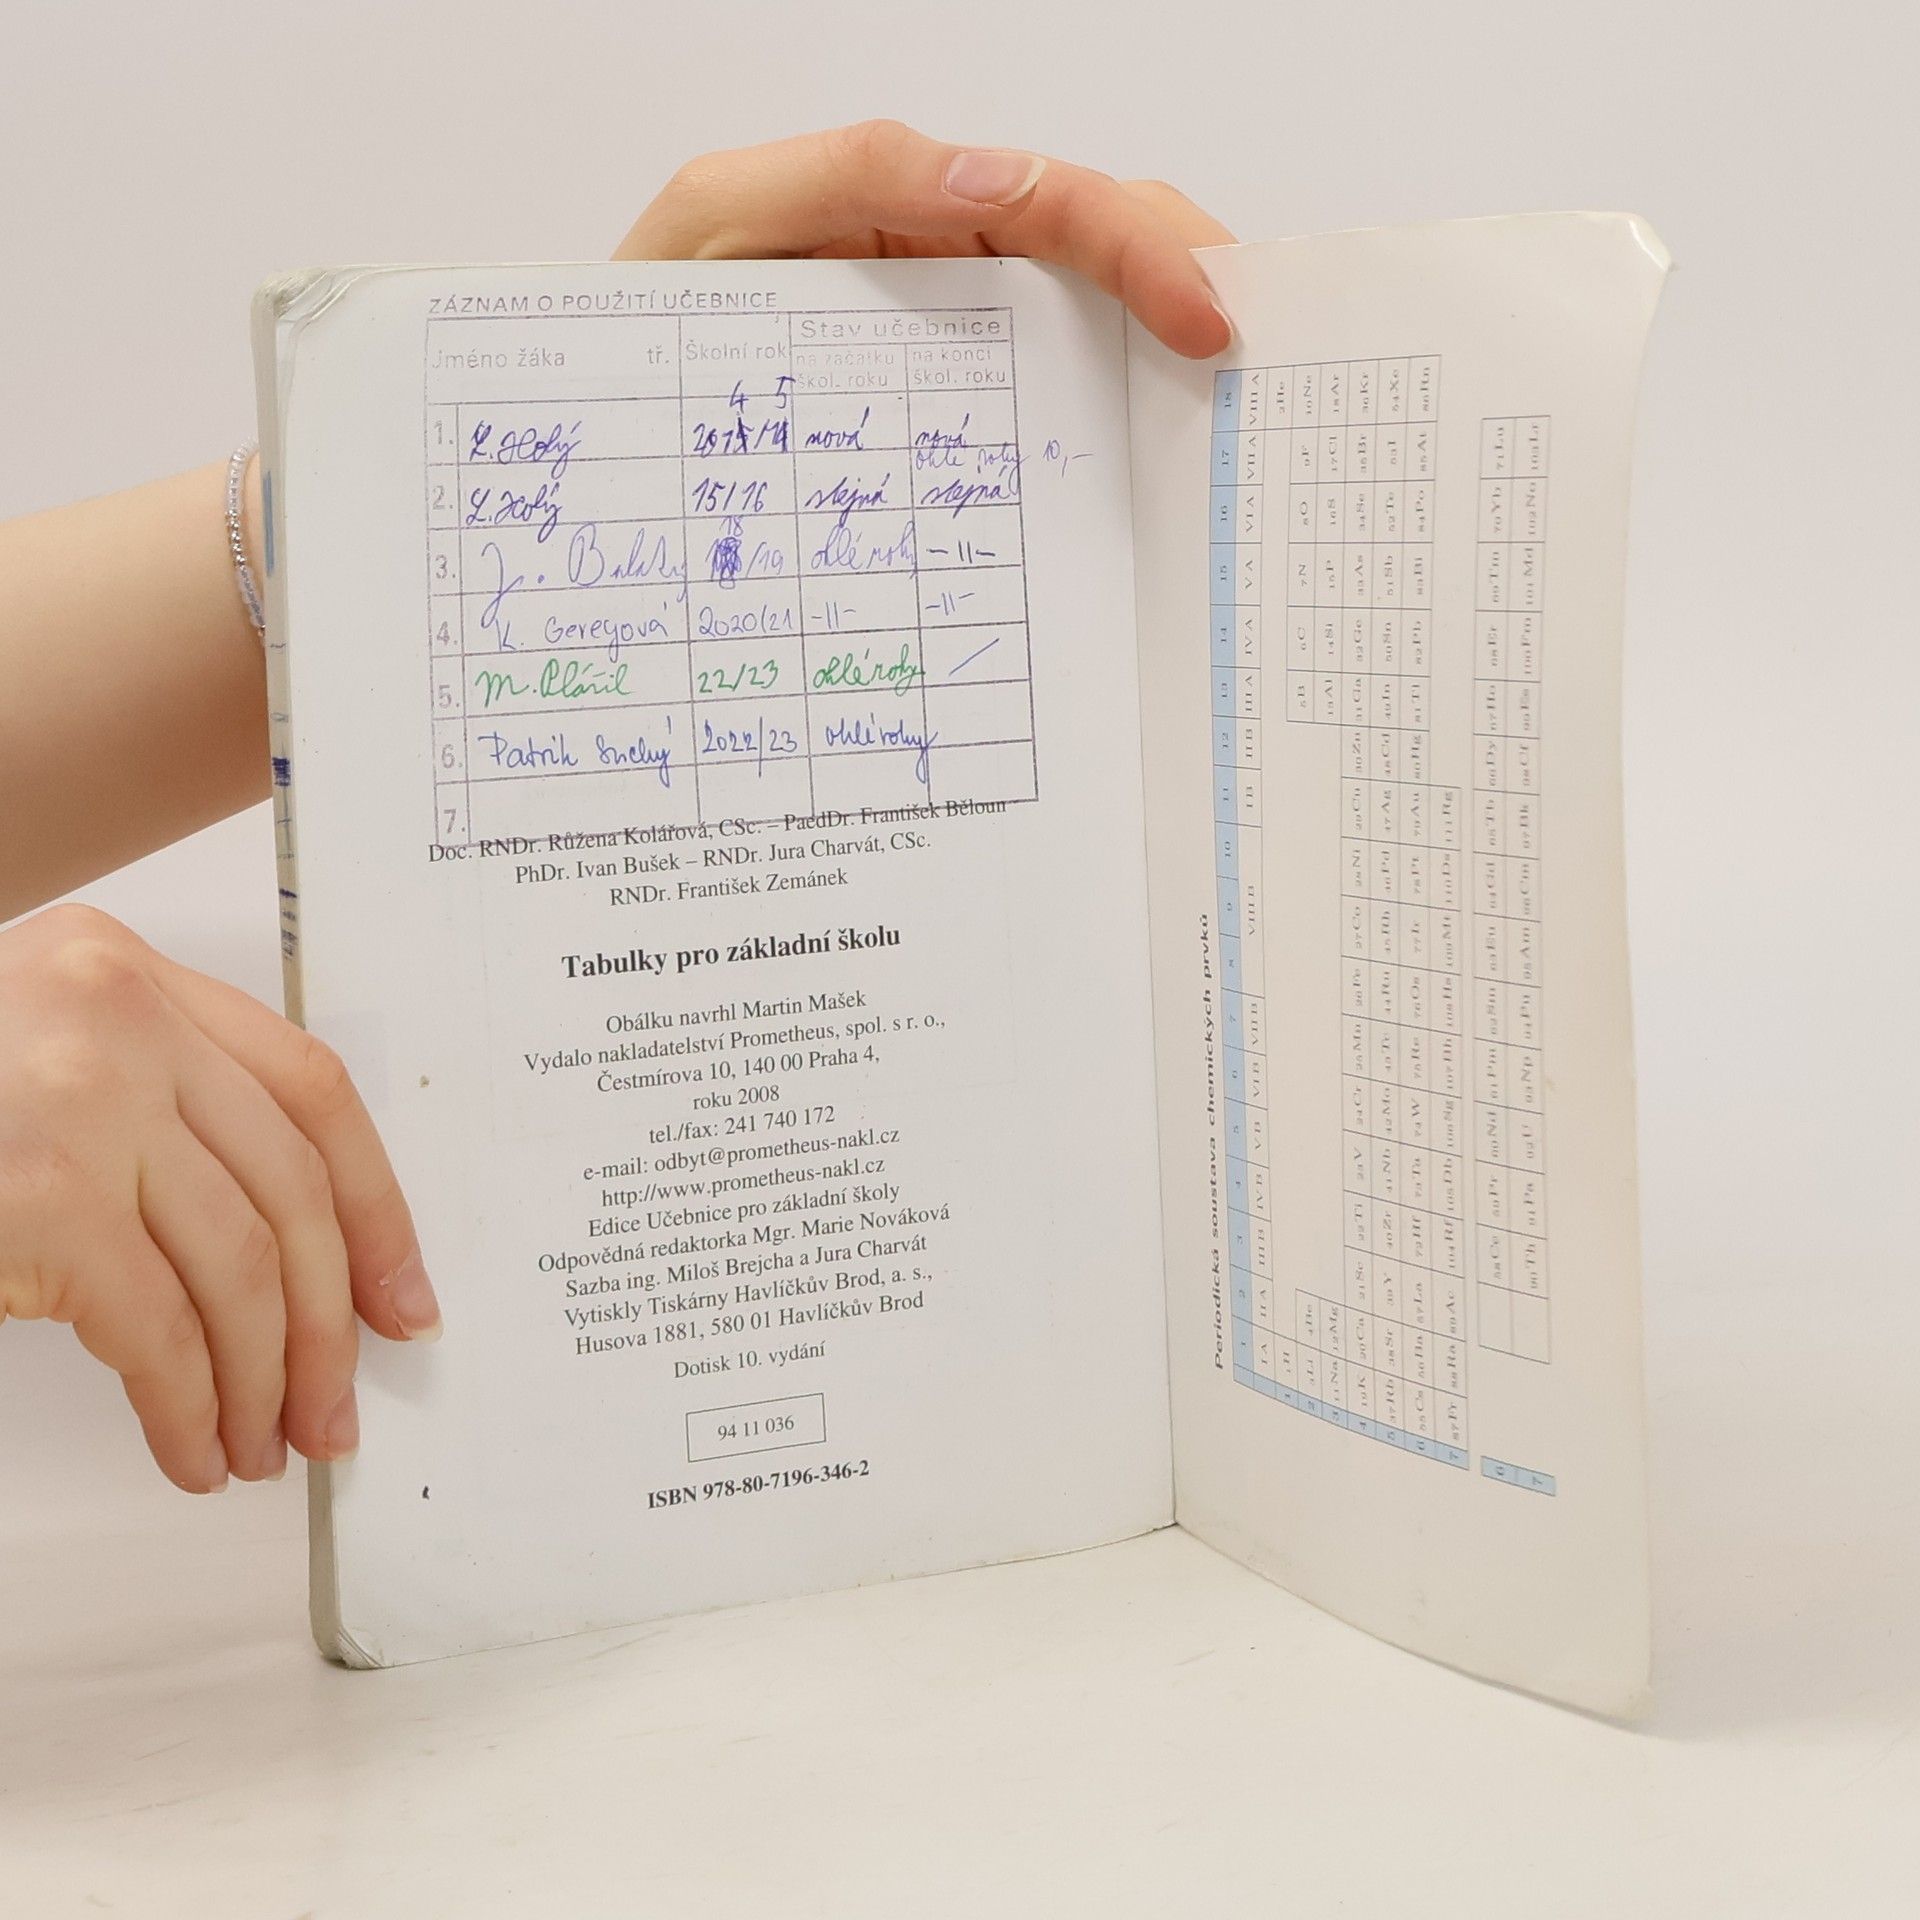 ZÁZNAM O POUŽITÍ UČEBNICE
Jméno žáka tř. Školní rok Stav učebnice
na začátku škol. roku na konci škol. roku
4 5
1. L. Holý nová nová
ohlé rohy 10,-
2. L. Holý 15/16 stejná stejná
18
3. J. /19 ohlé rohy -II-
4. K. Geregová 2020/21 -II- -II-
5. M. Plášil 22/23 ohlé rohy /
6. Patrik Suchý 2022/23 ohlé rohy
7.
Doc. RNDr. Růžena Kolářová, CSc. – PaedDr. František Běloun
PhDr. Ivan Bušek – RNDr. Jura Charvát, CSc.
RNDr. František Zemánek
Tabulky pro základní školu
Obálku navrhl Martin Mašek
Vydalo nakladatelství Prometheus, spol. s r. o.,
Čestmírova 10, 140 00 Praha 4,
roku 2008
tel./fax: 241 740 172
e-mail: odbyt@prometheus-nakl.cz
http://www.prometheus-nakl.cz
Edice Učebnice pro základní školy
Odpovědná redaktorka Mgr. Marie Nováková
Sazba ing. Miloš Brejcha a Jura Charvát
Vytiskly Tiskárny Havlíčkův Brod, a. s.,
Husova 1881, 580 01 Havlíčkův Brod
Dotisk 10. vydání
94 11 036
ISBN 978-80-7196-346-2
Periodická soustava chemických prvků
1 2 3 4 5 6 7 8 9 10 11 12 13 14 15 16 17 18
I A II A III B IV B V B VI B VII B VIII B I B II B III A IV A V A VI A VII A VIII A
1 1H 2He
2 3Li 4Be 5B 6C 7N 8O 9F 10Ne
3 11Na 12Mg 13Al 14Si 15P 16S 17Cl 18Ar
4 19K 20Ca 21Sc 22Ti 23V 24Cr 25Mn 26Fe 27Co 28Ni 29Cu 30Zn 31Ga 32Ge 33As 34Se 35Br 36Kr
5 37Rb 38Sr 39Y 40Zr 41Nb 42Mo 43Tc 44Ru 45Rh 46Pd 47Ag 48Cd 49In 50Sn 51Sb 52Te 53I 54Xe
6 55Cs 56Ba 57La 72Hf 73Ta 74W 75Re 76Os 77Ir 78Pt 79Au 80Hg 81Tl 82Pb 83Bi 84Po 85At 86Rn
7 87Fr 88Ra 89Ac 104Rf 105Db 106Sg 107Bh 108Hs 109Mt 110Ds 111Rg
6 58Ce 59Pr 60Nd 61Pm 62Sm 63Eu 64Gd 65Tb 66Dy 67Ho 68Er 69Tm 70Yb 71Lu
7 90Th 91Pa 92U 93Np 94Pu 95Am 96Cm 97Bk 98Cf 99Es 100Fm 101Md 102No 103Lr